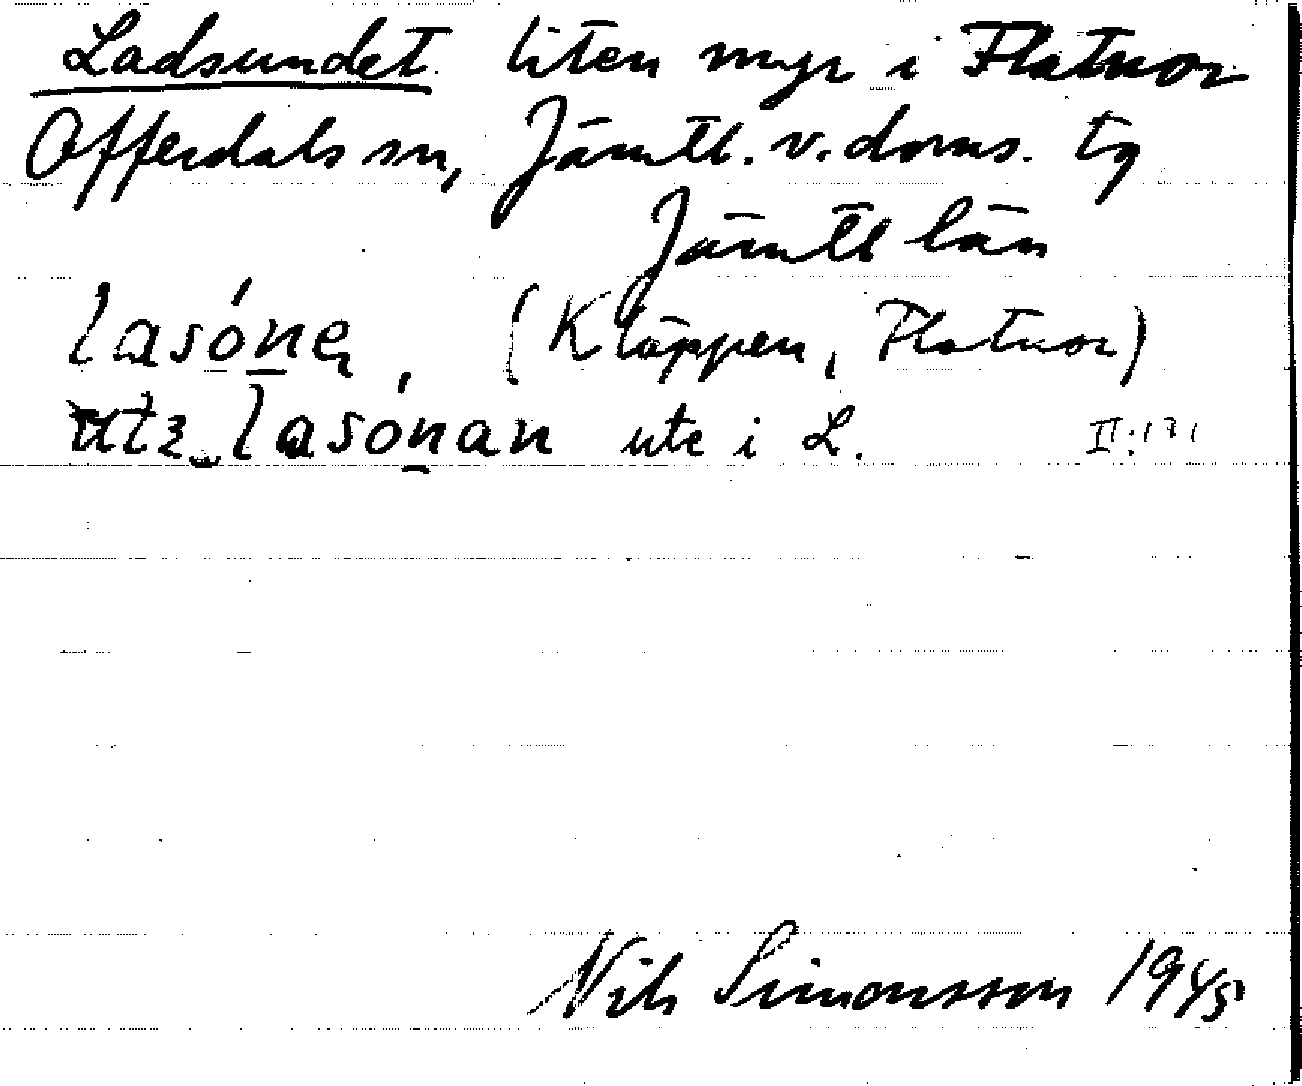 Ladsundet. liten myr i Flatnor
Offerdals sn, Jämtl. v. doms. tg
Jämtl län
lasóne̥, (Kläppen, Flatnor)
utɜ‿lasónan ute i L. II:171
Nils Simonsson 1945